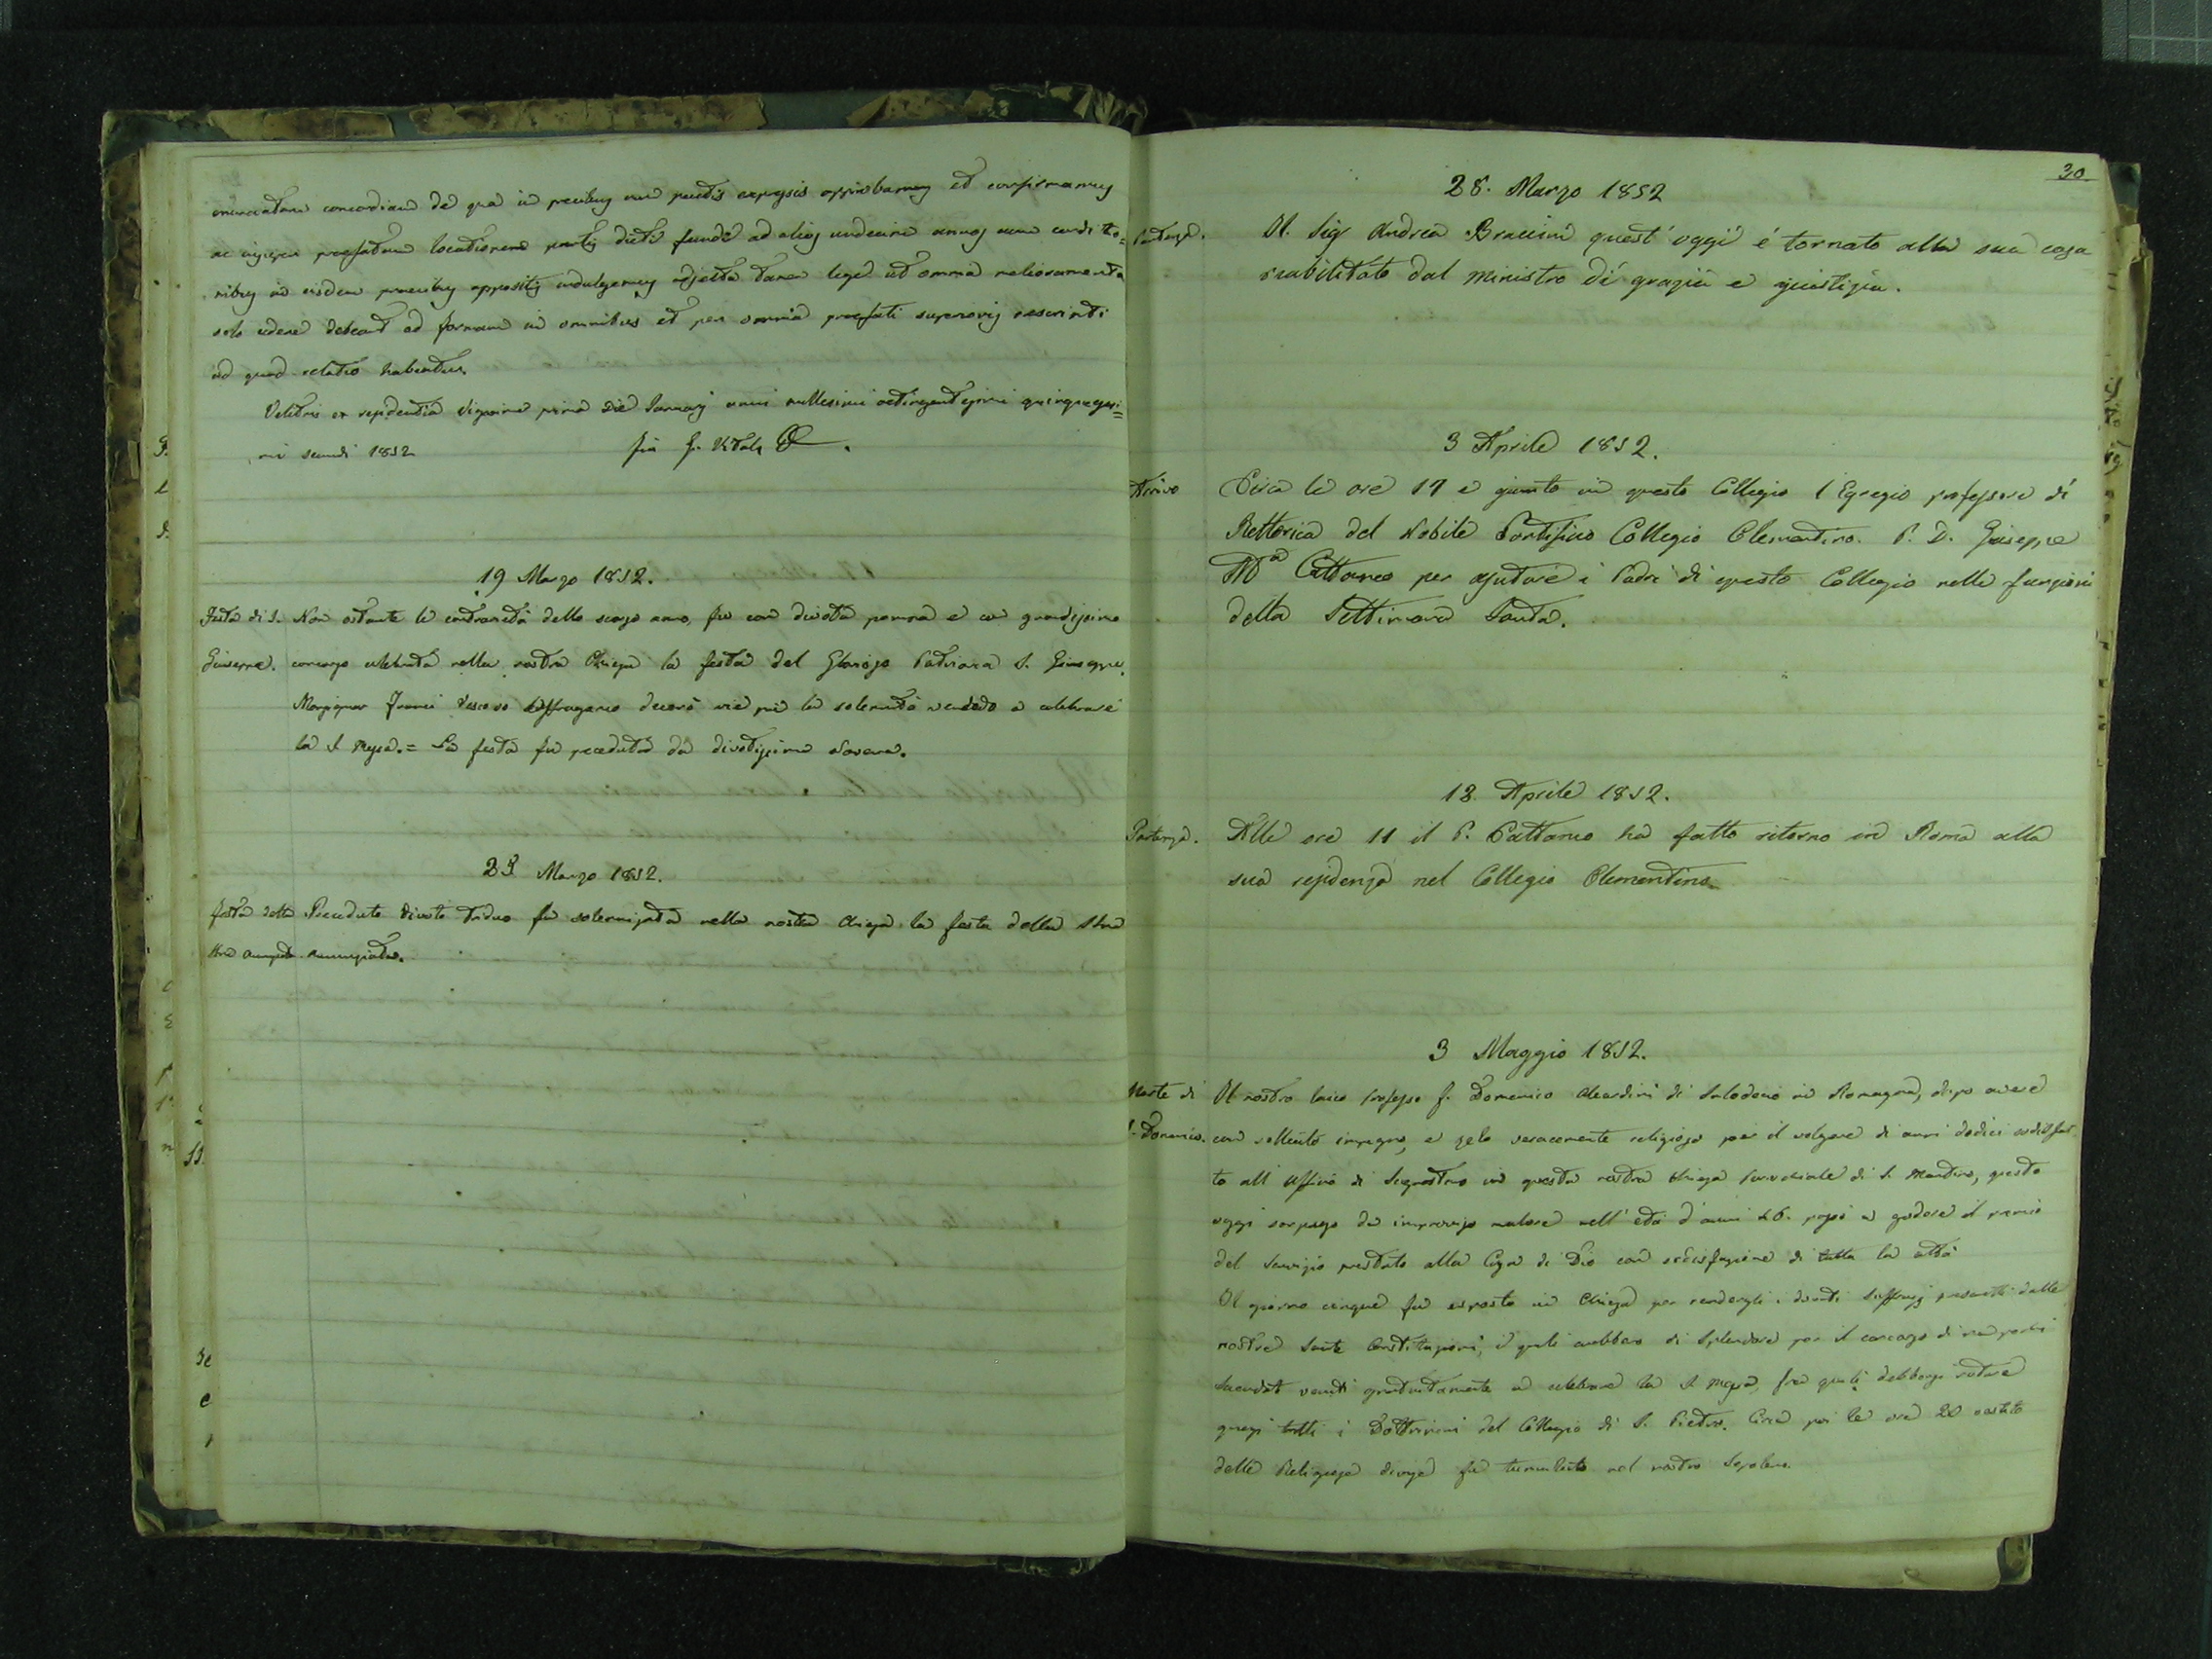 enunciatam concordiam de qua in precibus cum pactis expressis approbamus et confirmamus
ac insuper praefatam locationem partis dicti fundi ad alios undecim annos cum conditio=
nibus in eisdem precibus appositis indulgemus adjecta tamen lege ut omnia melioramenta
solo cedere debeant ad formam in omnibus et per omnia praefati superioris rescripti
ad quod relatio habeatur.
Velitris ex residentia vigesima prima die Januarij anni millesimi octingentesimi quinquagesi=
mi secundi 1852
19 Marzo 1852.
Festa di S. Giuseppe.
Non ostante le contrarietà dello scorso anno, fu con divota pompa e con grandissimo
concorso celebrata nella nostra Chiesa la festa del Glorioso Patriarca S. Giuseppe.
Monsignor Vescovo Suffraganeo decorò vie più la solennità venendo a celebrare
la S. Messa. = La festa fu preceduta da divotissima Novena.
25 Marzo 1852.
Festa della Sma Annunziata
Preceduta divoto triduo fu solennizzata nella nostra Chiesa la festa della Sma
Annunziata.
30
28. Marzo 1852
Partenza.
Il Sig Andrea Braccini quest'oggi é tornato alla sua casa
riabilitato dal ministro di grazia e giustizia.
3 Aprile 1852.
Arrivo
Circa le ore 17 e giunto in questo Collegio l Egregio professore di
Rettorica del Nobile Pontificio Collegio Clementino. P. D. Giuseppe
Ma Cattaneo per ajutare i Padri di questo Collegio nelle funzioni
della Settimana Santa.
18. Aprile 1852.
Partenza.
Alle ore 11 il P. Cattaneo ha fatto ritorno in Roma alla
sua residenza nel Collegio Clementino.
3 Maggio 1852.
Morte di f. Domenico.
Il nostro laico professo f. Domenico di in Romagna, dopo avere
con sollecito impegno, e zelo veracemente religioso per il volgere di anni dodici sodisfat
to all' Uffivio di Sagrestano in questa nostra Chiesa Parrochiale di S. Martino, questo
oggi sorpreso da improvviso malore nell' età d'anni 46. passò a godere il premio
del servizio prestato alla Casa di Dio con sodisfazione di tutta la città
Il giorno cinque fu esposto in Chiesa per rendergli i dovuti suffragj prescritti dalle
nostre Sante Costituzioni, i quali ebbero di splendore per il concorso di
Sacerdoti venuti gratuitamente a celebrare la S. Messa, fra quali debbonsi notare
quasi tutti i Dottrinari del Collegio di S. Pietro. Circa poi le ore 20 vestito
delle Religiose divise fu tumulato nel nostro Sepolcro.